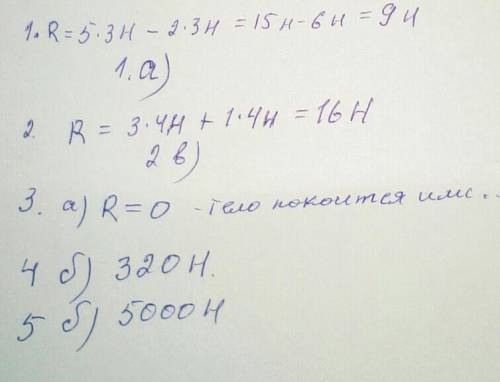 1. R = 5·3Н − 2·3Н = 15Н − 6Н = 9Н
1. а)
2. R = 3·4Н + 1·4Н = 16Н
2 в)
3. а) R = 0 - тело покоится или . .
4 б) 320Н.
5 б) 5000Н